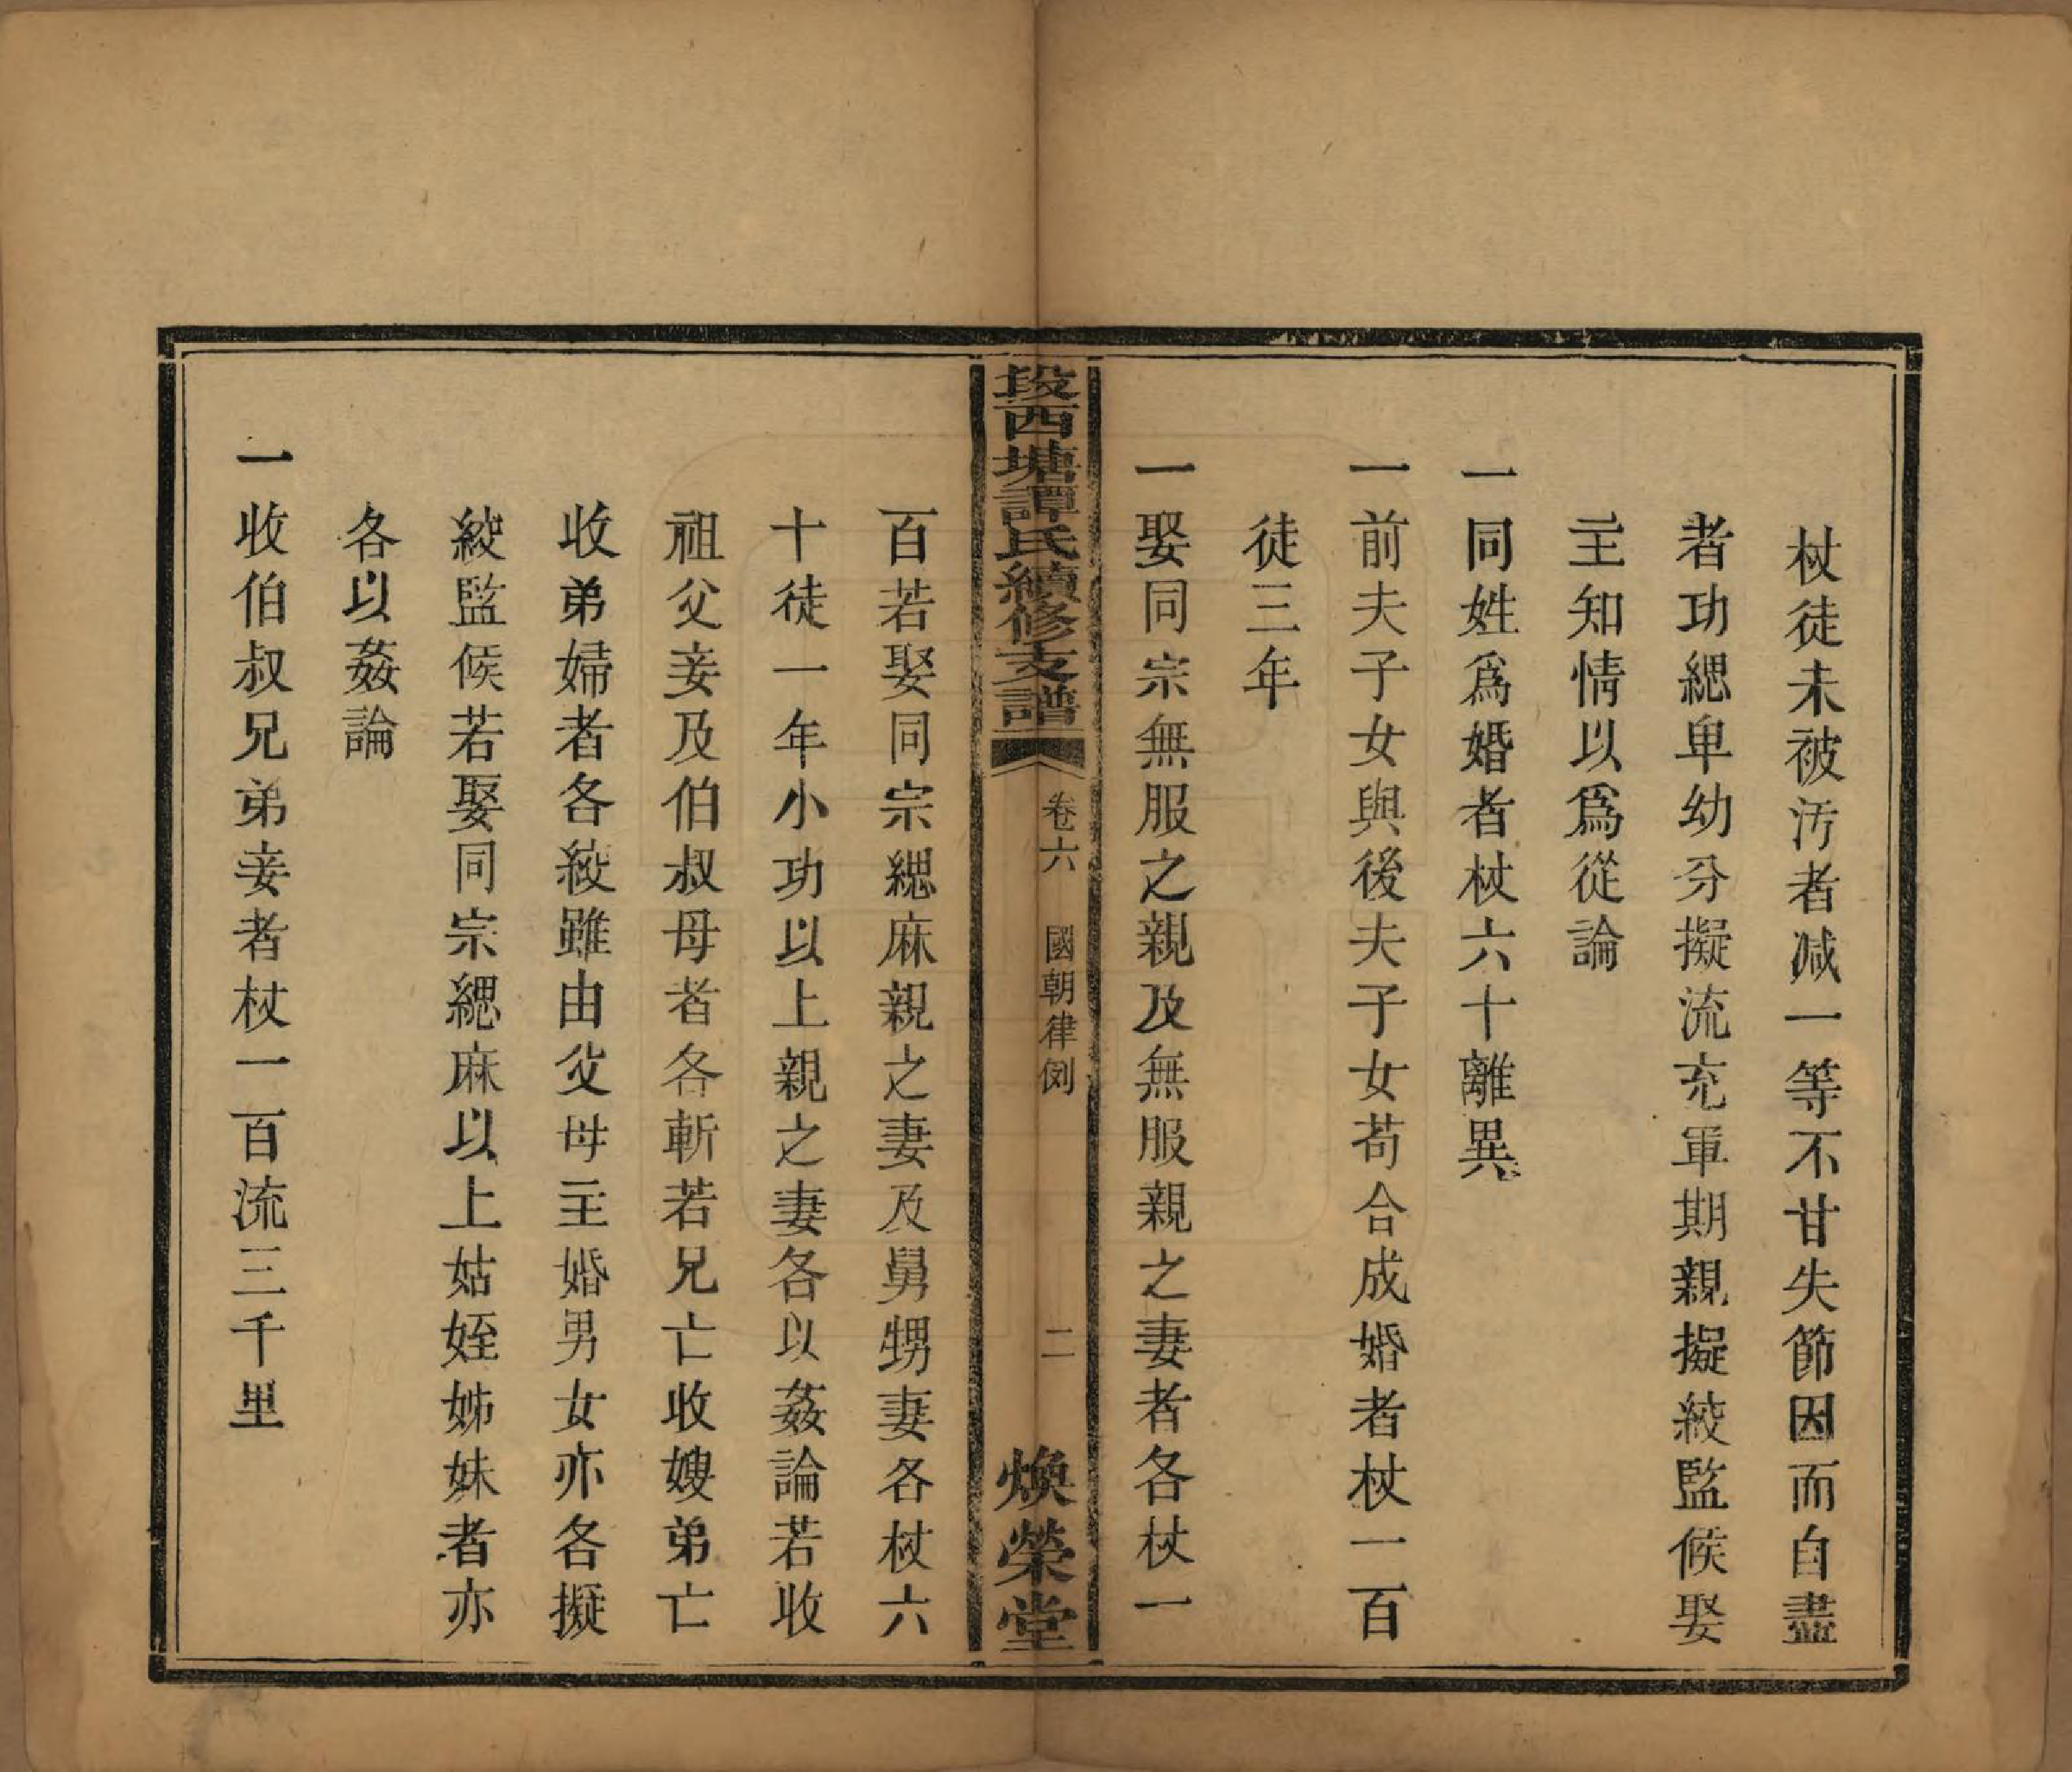 杖徒未被汚者減一等不甘失節因而自盡
者功緦卑幼分擬流充軍期親擬絞監候娶
主知情以爲從論
一同姓爲婚者杖六十離異
一前夫子女與後夫子女苟合成婚者杖一百
徒三年
一娶同宗無服之親及無服親之妻者各杖一
段西塘譚氏續修支譜
卷六
國朝律例
二
煥榮堂
百若娶同宗緦麻親之妻及舅甥妻各杖六
十徒一年小功以上親之妻各以姦論若收
祖父妾及伯叔母者各斬若兄亡收嫂弟亡
收弟婦者各絞雖由父母主婚男女亦各擬
絞監候若娶同宗緦麻以上姑姪姊妹者亦
各以姦論
一收伯叔兄弟妾者杖一百流三千里